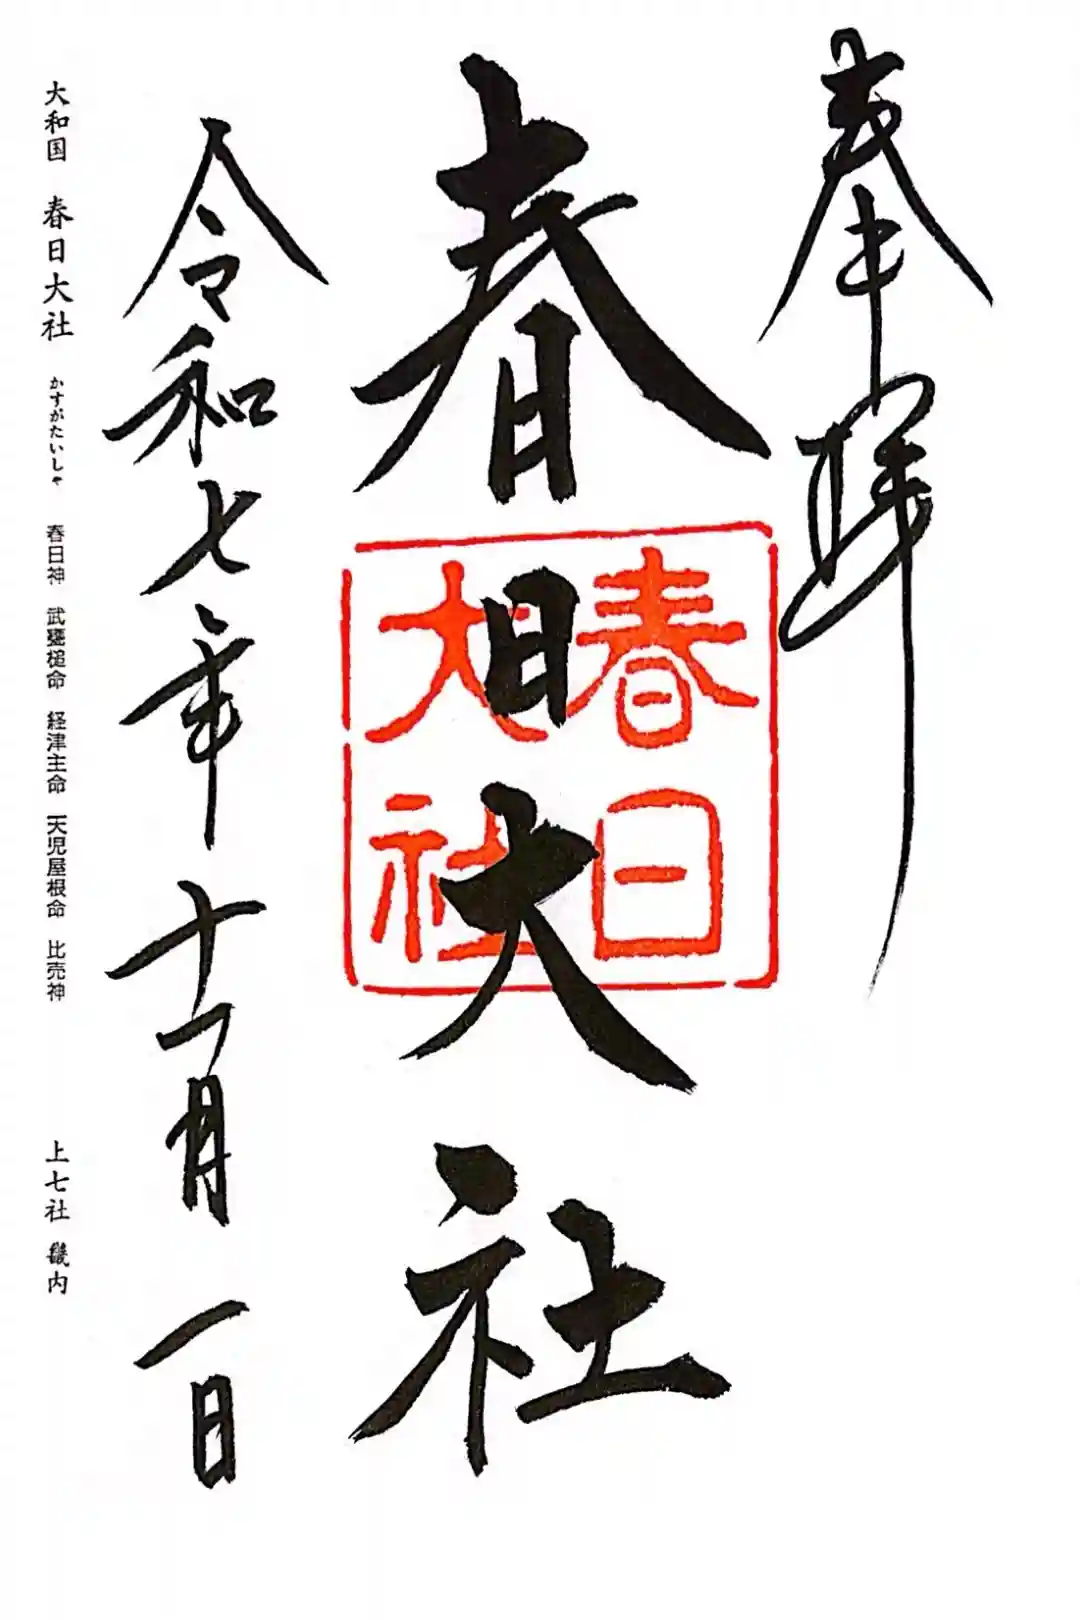 奉拝
春日大社
春日
大社
令和七年十一月一日
大和国 春日大社 かすがたいしゃ 春日神 武甕槌命 経津主命 天児屋根命 比売神 上七社 畿内